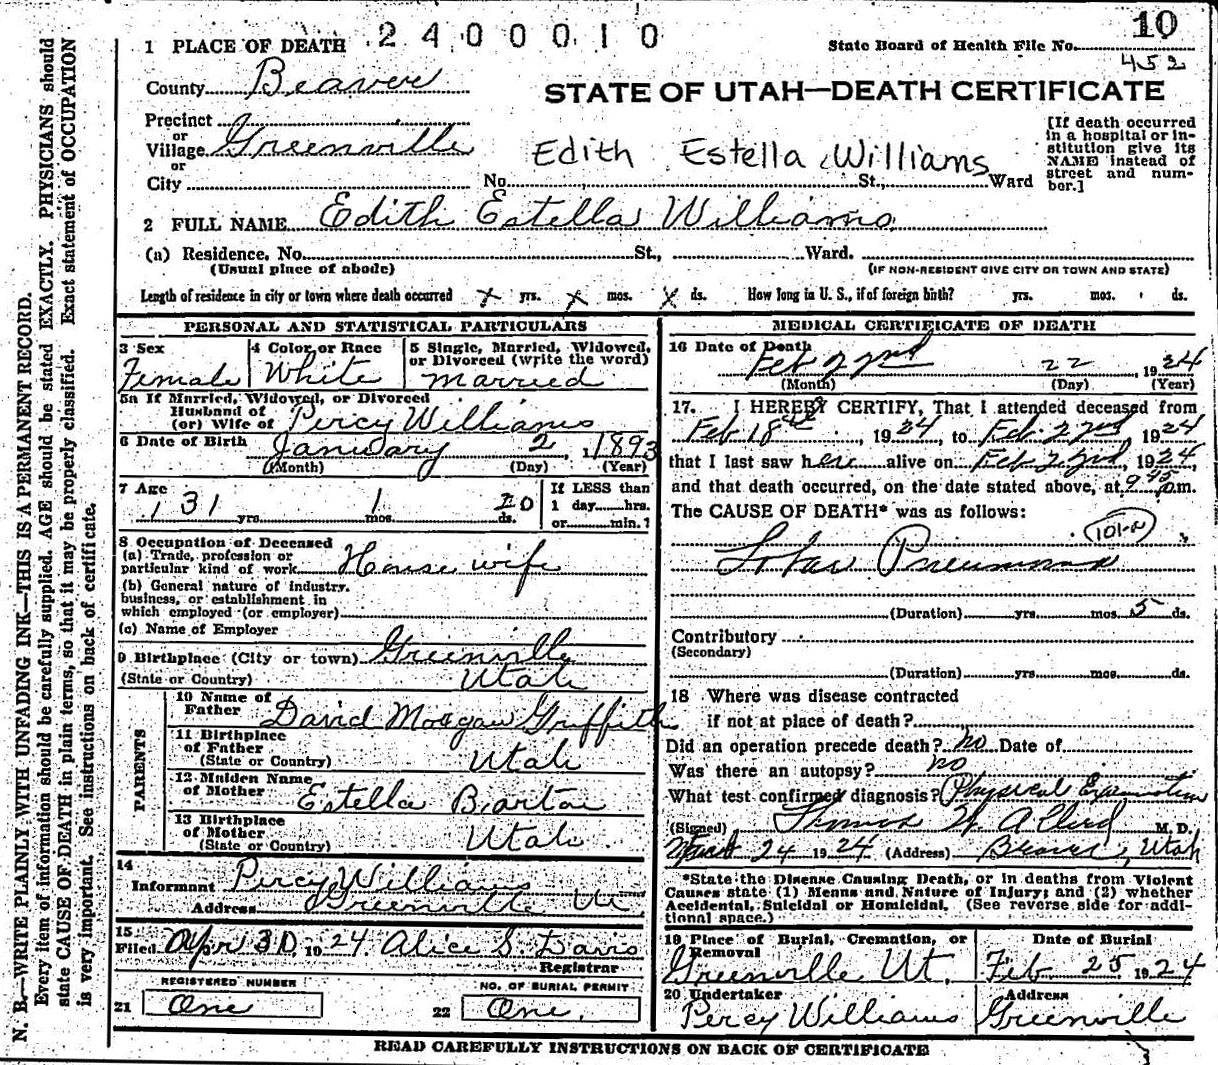 10
2400010
1 PLACE OF DEATH
State Board of Health File No.
452
County Beaver
STATE OF UTAH—DEATH CERTIFICATE
Precinct
or
Village Greenville
or
City No. St., Ward
Edith Estella Williams
[If death occurred
in a hospital or in-
stitution give its
NAME instead of
street and num-
ber.]
2 FULL NAME Edith Estella Williams
(a) Residence, No. St., Ward.
(Usual place of abode) (IF NON-RESIDENT GIVE CITY OR TOWN AND STATE)
Length of residence in city or town where death occurred X yrs. X mos. X ds. How long in U. S., if of foreign birth? yrs. mos. ds.
PERSONAL AND STATISTICAL PARTICULARS
3 Sex
Female
4 Color or Race
White
5 Single, Married, Widowed,
or Divorced (write the word)
Married
5a If Married, Widowed, or Divorced
Husband of
(or) Wife of Percy Williams
6 Date of Birth January 2, 1893
(Month) (Day) (Year)
7 Age
31 yrs. 1 mos. 20 ds.
If LESS than
1 day hrs.
or min.?
8 Occupation of Deceased
(a) Trade, profession or
particular kind of work House wife
(b) General nature of industry,
business, or establishment in
which employed (or employer)
(c) Name of Employer
9 Birthplace (City or town) Greenville
(State or Country) Utah
PARENTS
10 Name of
Father David Morgan Griffith
11 Birthplace
of Father
(State or Country) Utah
12 Maiden Name
of Mother Estella Barton
13 Birthplace
of Mother
(State or Country) Utah
14
Informant Percy Williams
Address Greenville Ut.
15
Filed Apr 30 1924 Alice S. Davis
Registrar
REGISTERED NUMBER
21 One
NO. OF BURIAL PERMIT
22 One.
MEDICAL CERTIFICATE OF DEATH
16 Date of Death
Feb 22nd 22, 1924
(Month) (Day) (Year)
17. I HEREBY CERTIFY, That I attended deceased from
Feb 18th, 1924, to Feb. 22nd, 1924
that I last saw her alive on Feb 22nd, 1924,
and that death occurred, on the date stated above, at 9 45 p.m.
The CAUSE OF DEATH* was as follows:
101-a
Lobar Pneumonia
(Duration) yrs. mos. 5 ds.
Contributory
(Secondary)
(Duration) yrs. mos. ds.
18 Where was disease contracted
if not at place of death?
Did an operation precede death? no Date of
Was there an autopsy? no
What test confirmed diagnosis? Physical Examination
(Signed) Thomas W. Allerd M. D.
24 1924 (Address) Beaver, Utah
*State the Disease Causing Death, or in deaths from Violent
Causes state (1) Means and Nature of Injury; and (2) whether
Accidental, Suicidal or Homicidal. (See reverse side for addi-
tional space.)
19 Place of Burial, Cremation, or
Removal
Greenville Ut.
Date of Burial
Feb 25 1924
20 Undertaker
Percy Williams
Address
Greenville
READ CAREFULLY INSTRUCTIONS ON BACK OF CERTIFICATE
3
N. B.—WRITE PLAINLY WITH UNFADING INK—THIS IS A PERMANENT RECORD.
Every item of information should be carefully supplied. AGE should be stated EXACTLY. PHYSICIANS should
state CAUSE OF DEATH in plain terms, so that it may be properly classified. Exact statement of OCCUPATION
is very important. See instructions on back of certificate.